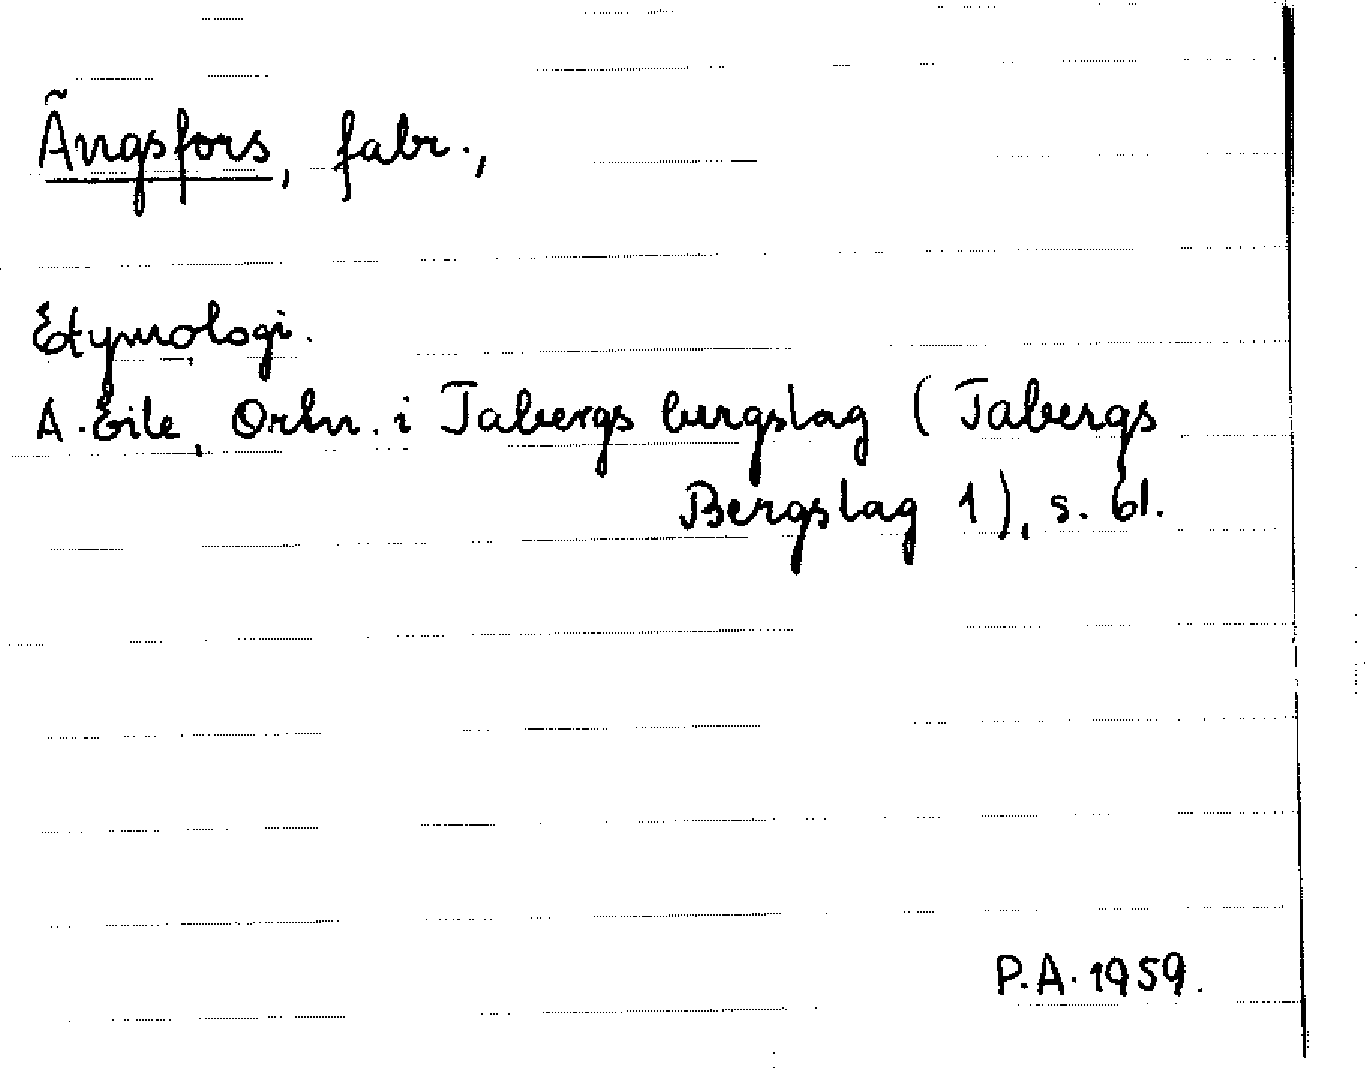 Ängsfors, fabr.,
Etymologi.
A. Eile, Ortn. i Tabergs bergslag (Tabergs
Bergslag 1), s. 61.
P.A. 1959.